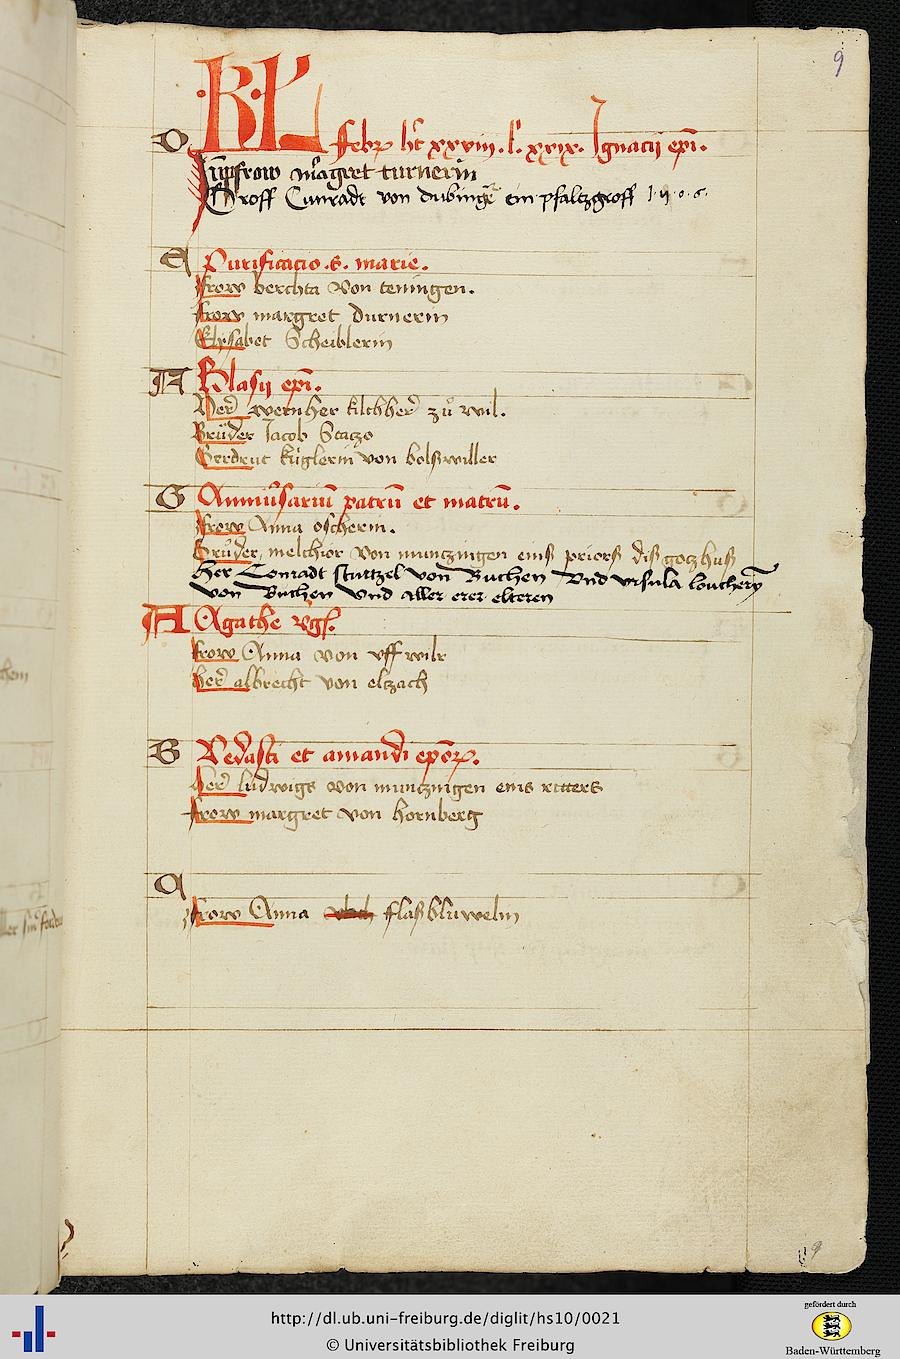 9
D KL Febr ht xxviii. l. xxix. Ignacii epi.
Junpfrow margret turnerin
Groff Cunradt von dubinge ein pfaltzgroff
E Purificacio .S. marie.
frow berchta von teningen.
frow margret durnerin
Elysabet Scheiblerin
F Blasii epi.
Her wernher kilchher zů wil.
Brůder Jacob Staczo
Gerdrut kůglerin von bolswiller
G Anniversariu patru et matru.
frow Anna oscherin.
Brůder melchior von muntzingen eins priors dis gotzhus
Her Conradt sturtzel von Buchen vnd vrsula louchery
von Buchen vnd aller erer elteren
A Agathe vgi.
frow Anna von vffwilr
Her albrecht von eltzach
B Vedasti et amandi epor.
Her ludwigs von muntzingen eins ritters
frow margret von hornberg
C
frow Anna flasbluwelin
9
http://dl.ub.uni-freiburg.de/diglit/hs10/0021
© Universitätsbibliothek Freiburg
gefördert durch
Baden-Württemberg